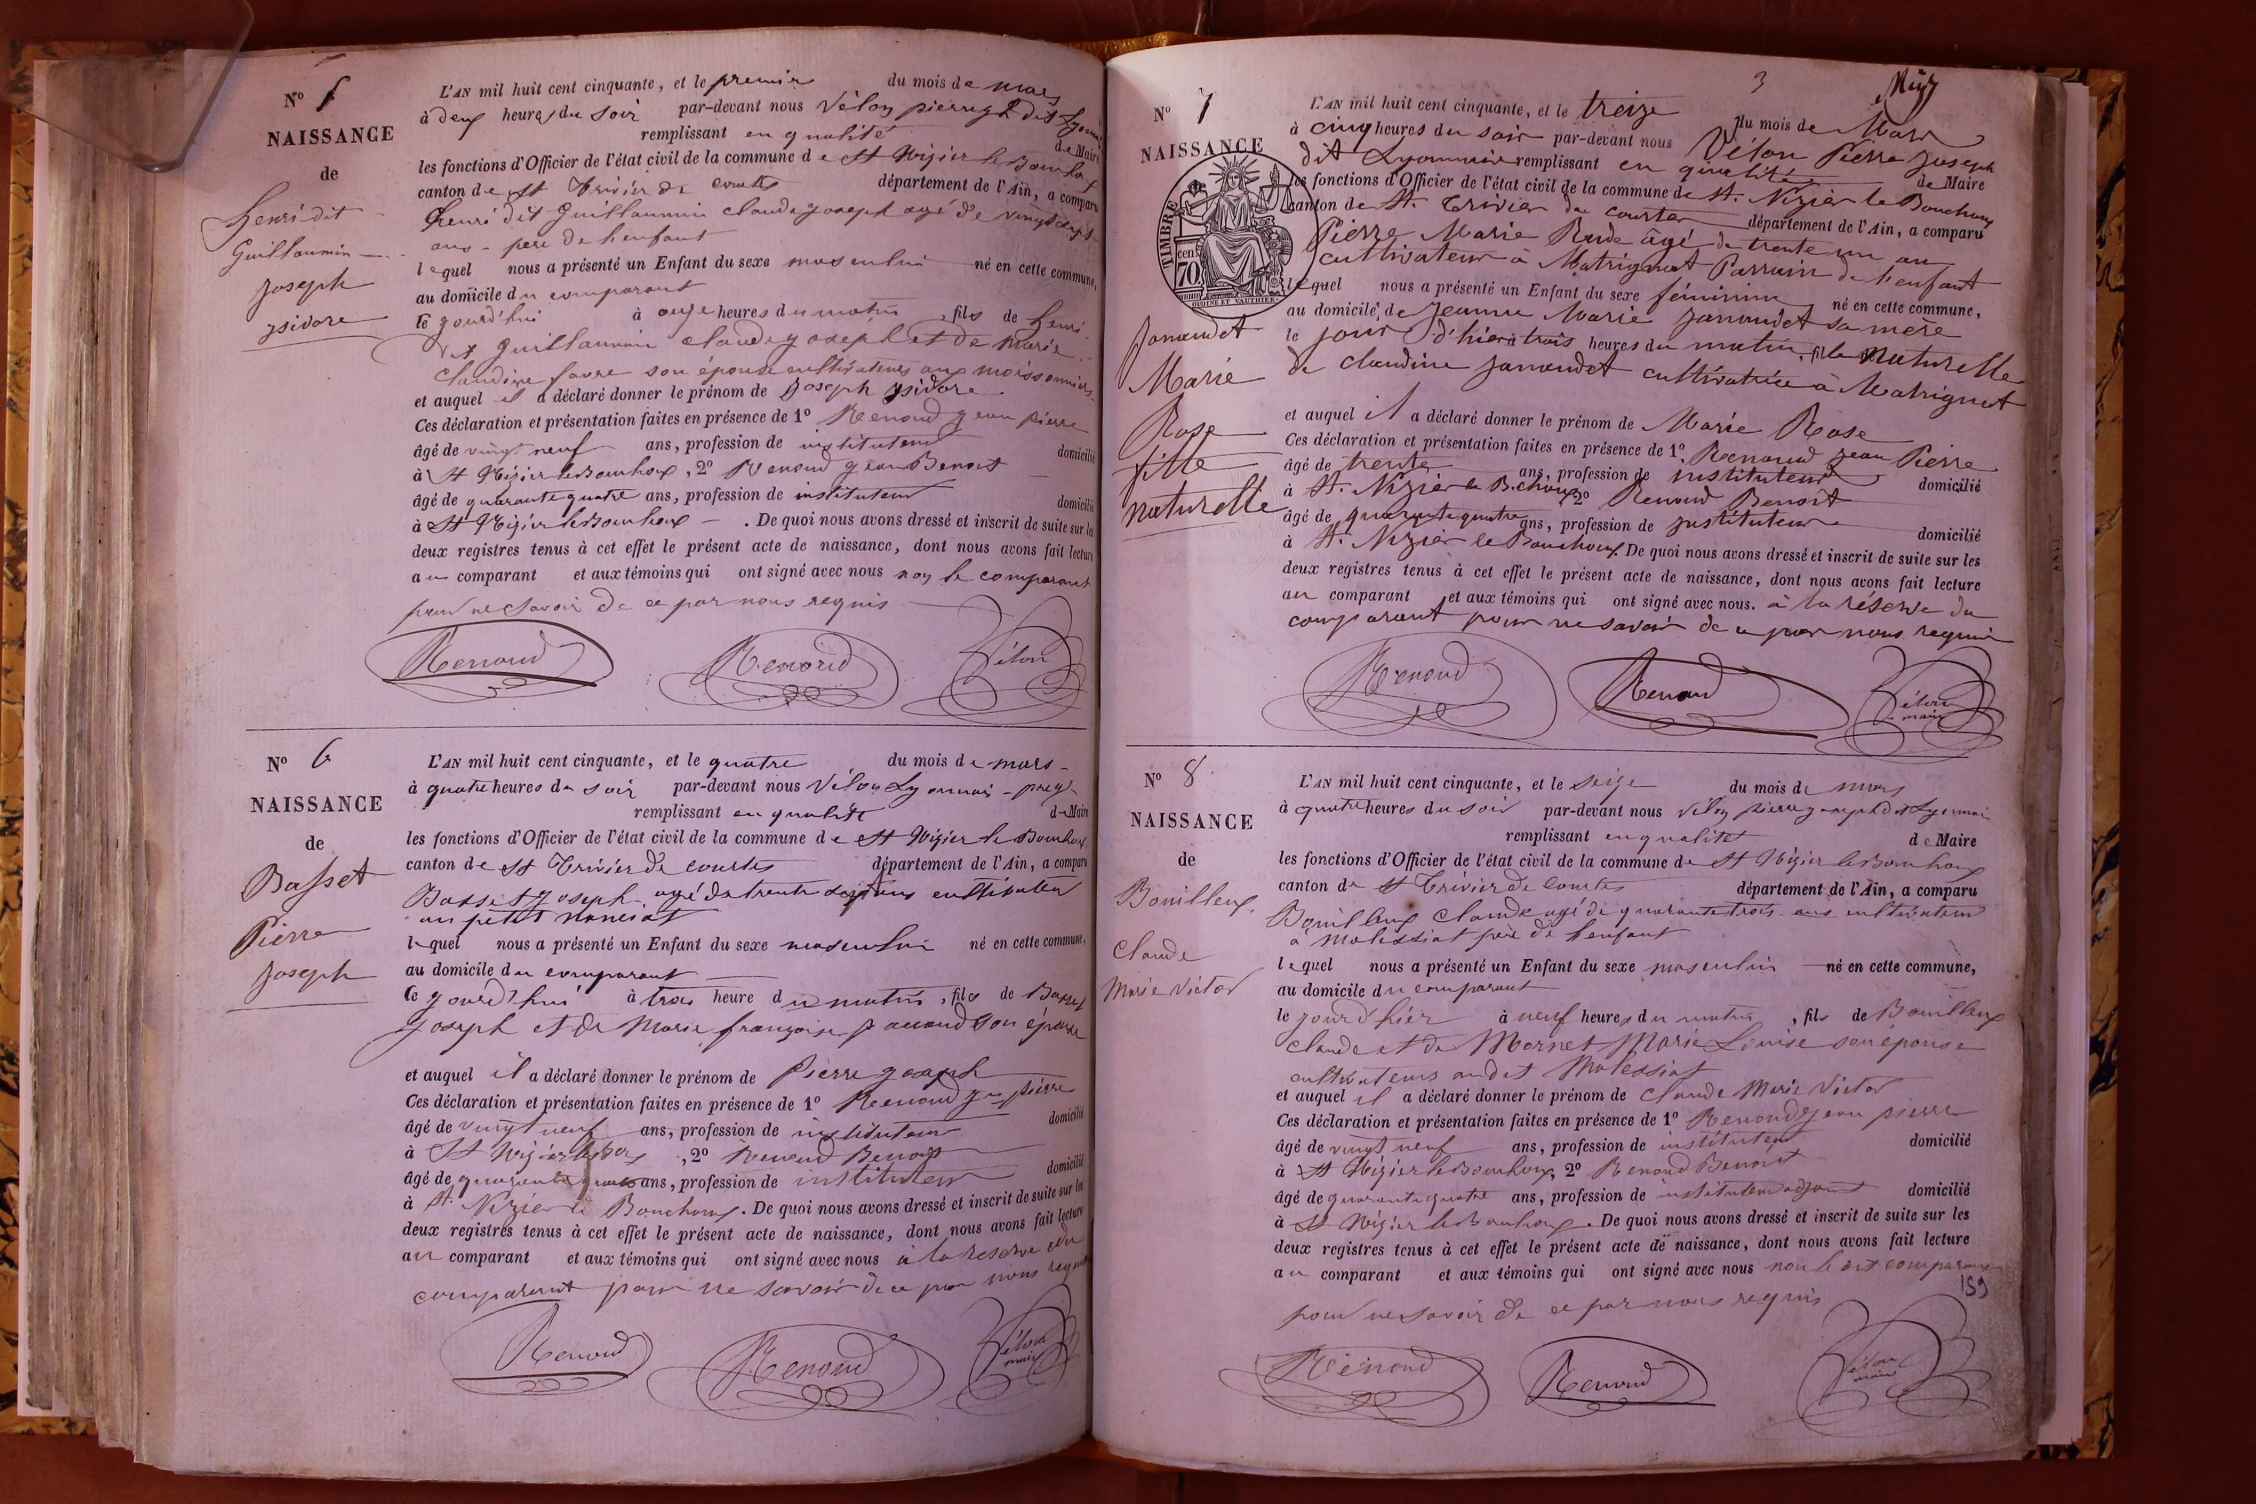 N° 5
NAISSANCE
de
henri dit
Guillaumin
Joseph
ysidore
L'AN mil huit cent cinquante, et le premier du mois de mars
à deux heures du soir par-devant nous Vélon pierre dit
remplissant en qualité de Maire
les fonctions d'Officier de l'état civil de la commune de St Nizier le Bouchoux
canton de St Trivier de courtes département de l'Ain, a comparu
henri dit guillaumin claude joseph agé de vingt sept
ans - pere de l'enfant
lequel nous a présenté un Enfant du sexe masculin né en cette commune,
au domicile du comparant
ce jourd'hui à onze heures du matin, fils de henri
dit guillaumin claude joseph et de marie
claudine favre son épouse cultivateurs aux moissonniers
et auquel il a déclaré donner le prénom de Joseph ysidore
Ces déclaration et présentation faites en présence de 1° Renoud jean pierre
âgé de vingt neuf ans, profession de instituteur domicilié
à St Nizier le Bouchoux, 2° Renoud jean Benoit
âgé de quarante quatre ans, profession de instituteur domicilié
à St Nizier le Bouchoux. De quoi nous avons dressé et inscrit de suite sur les
deux registres tenus à cet effet le présent acte de naissance, dont nous avons fait lecture
au comparant et aux témoins qui ont signé avec nous non le comparant
pour ne savoir de ce par nous requis
Renoud Renoud Vélon
N° 6
NAISSANCE
de
Basset
Pierre
Joseph
L'AN mil huit cent cinquante, et le quatre du mois de mars
à quatre heures du soir par-devant nous Vélon Lyonnais
remplissant en qualité de Maire
les fonctions d'Officier de l'état civil de la commune de St Nizier le Bouchoux
canton de St Trivier de courtes département de l'Ain, a comparu
Basset Joseph agé de trente sept ans cultivateur
au petit
lequel nous a présenté un Enfant du sexe masculin né en cette commune,
au domicile du comparant
ce jourd'hui à trois heure du matin, fils de Basset
joseph et de Marie françoise son épouse
et auquel il a déclaré donner le prénom de Pierre joseph
Ces déclaration et présentation faites en présence de 1° Renoud jean pierre
âgé de vingt neuf ans, profession de instituteur domicilié
à St Nizier le Bou, 2° Renoud Benoit
âgé de quarante quatre ans, profession de instituteur domicilié
à St. Nizier le Bouchoux. De quoi nous avons dressé et inscrit de suite sur les
deux registres tenus à cet effet le présent acte de naissance, dont nous avons fait lecture
au comparant et aux témoins qui ont signé avec nous à la reserve du
comparant pour ne savoir de ce par nous requis
Renoud Renoud Vélon maire
3
N° 7
NAISSANCE
TIMBRE
70
Jamaudet
Marie
Rose
fille
naturelle
L'AN mil huit cent cinquante, et le treize du mois de Mars
à cinq heures du soir par-devant nous Vélon Pierre Joseph
dit Lyonnais remplissant en qualité de Maire
les fonctions d'Officier de l'état civil de la commune de St. Nizier le Bouchoux
canton de St. Trivier de courtes département de l'Ain, a comparu
Pierre Marie Rude âgé de trente un an
cultivateur à Matrignat Parrain de l'enfant
lequel nous a présenté un Enfant du sexe féminin né en cette commune,
au domicile de Jeanne Marie Jamaudet sa mère
le jour d'hier à trois heures du matin, fille naturelle
de claudine Jamaudet cultivatrice à Matrignat
et auquel il a déclaré donner le prénom de Marie Rose
Ces déclaration et présentation faites en présence de 1° Renoud Jean Pierre
âgé de trente ans, profession de instituteur domicilié
à St. Nizier le B.choux 2° Renoud Benoit
âgé de quarante quatre ans, profession de instituteur domicilié
à St. Nizier le Bouchoux. De quoi nous avons dressé et inscrit de suite sur les
deux registres tenus à cet effet le présent acte de naissance, dont nous avons fait lecture
au comparant et aux témoins qui ont signé avec nous. à la réserve du
comparant pour ne savoir de ce par nous requis
Renoud Renoud Vélon maire
N° 8
NAISSANCE
de
Bouilloux
Claude
Marie Victor
L'AN mil huit cent cinquante, et le seize du mois de mars
à quatre heures du soir par-devant nous Vélon pierre joseph dit Lyonnais
remplissant en qualité de Maire
les fonctions d'Officier de l'état civil de la commune de St Nizier le Bouchoux
canton de St Trivier de Courtes département de l'Ain, a comparu
Bouilloux Claude agé de quarante trois ans cultivateur
à Malessiat père de l'enfant
lequel nous a présenté un Enfant du sexe masculin né en cette commune,
au domicile du comparant
le jour d'hier à neuf heures du matin, fils de Bouilloux
Claude et de Mornet Marie Louise son épouse
cultivateurs audit Malessiat
et auquel il a déclaré donner le prénom de Claude Marie Victor
Ces déclaration et présentation faites en présence de 1° Renoud jean pierre
âgé de vingt neuf ans, profession de instituteur domicilié
à St Nizier le Bouchoux, 2° Renoud Benoit
âgé de quarante quatre ans, profession de instituteur adjoint domicilié
à St Nizier le Bouchoux. De quoi nous avons dressé et inscrit de suite sur les
deux registres tenus à cet effet le présent acte de naissance, dont nous avons fait lecture
au comparant et aux témoins qui ont signé avec nous non le dit comparant
159
pour ne savoir de ce par nous requis
Renoud Renoud Vélon maire